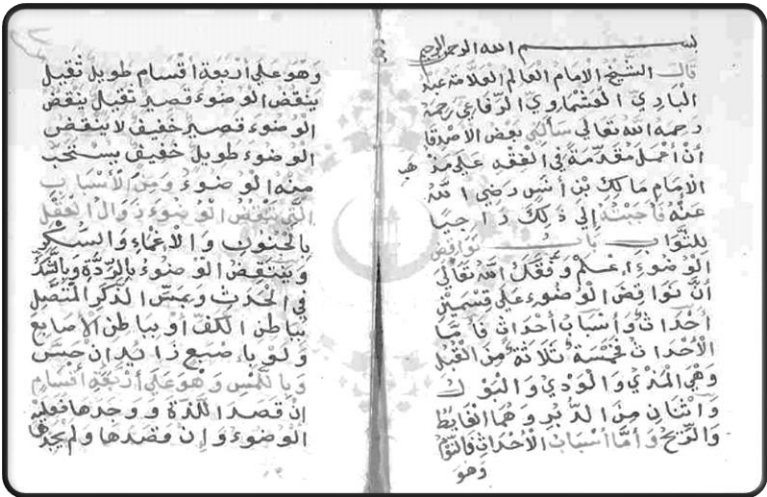 بسم الله الرحمن الرحيم
قال الشيخ الامام العالم العلامة عبد
البادي العشماوي الرفاعي رحمه
رحمه الله تعالى سألني بعض الاصدقا
أن أعمل مقدمة في الفقه على مذهب
الامام مالك بن أنس رضي الله
عنه فأجبته إلى ذلك راجيا
للثواب باب نواقض
الوضوء اعلم وفقك الله تعالى
أن نواقض الوضوء على قسمين
أحداث وأسباب أحداث فأما
الأحداث فخمسة ثلاثة من القبل
وهي المذي والودي والبول
واثنان من الدبر وهما الغايط
والريح وأما أسباب الأحداث فالنوم
وهو
وهو على أربعة أقسام طويل ثقيل
ينقض الوضوء قصير ثقيل ينقض
الوضوء قصير خفيف لا ينقض
الوضوء طويل خفيف يستحب
منه الوضوء ومن الأسباب
التي تنقض الوضوء زوال العقل
بالجنون والاغماء والسكر
وينتقض الوضوء بالردة وبالشك
في الحدث وبمس الذكر المتصل
بباطن الكف او بباطن الاصابع
ولو باصبع زايد ان حس
وباللمس وهو على أربعة أقسام
إن قصد اللذة ووجدها فعليه
الوضوء وإن قصدها ولم يجدها